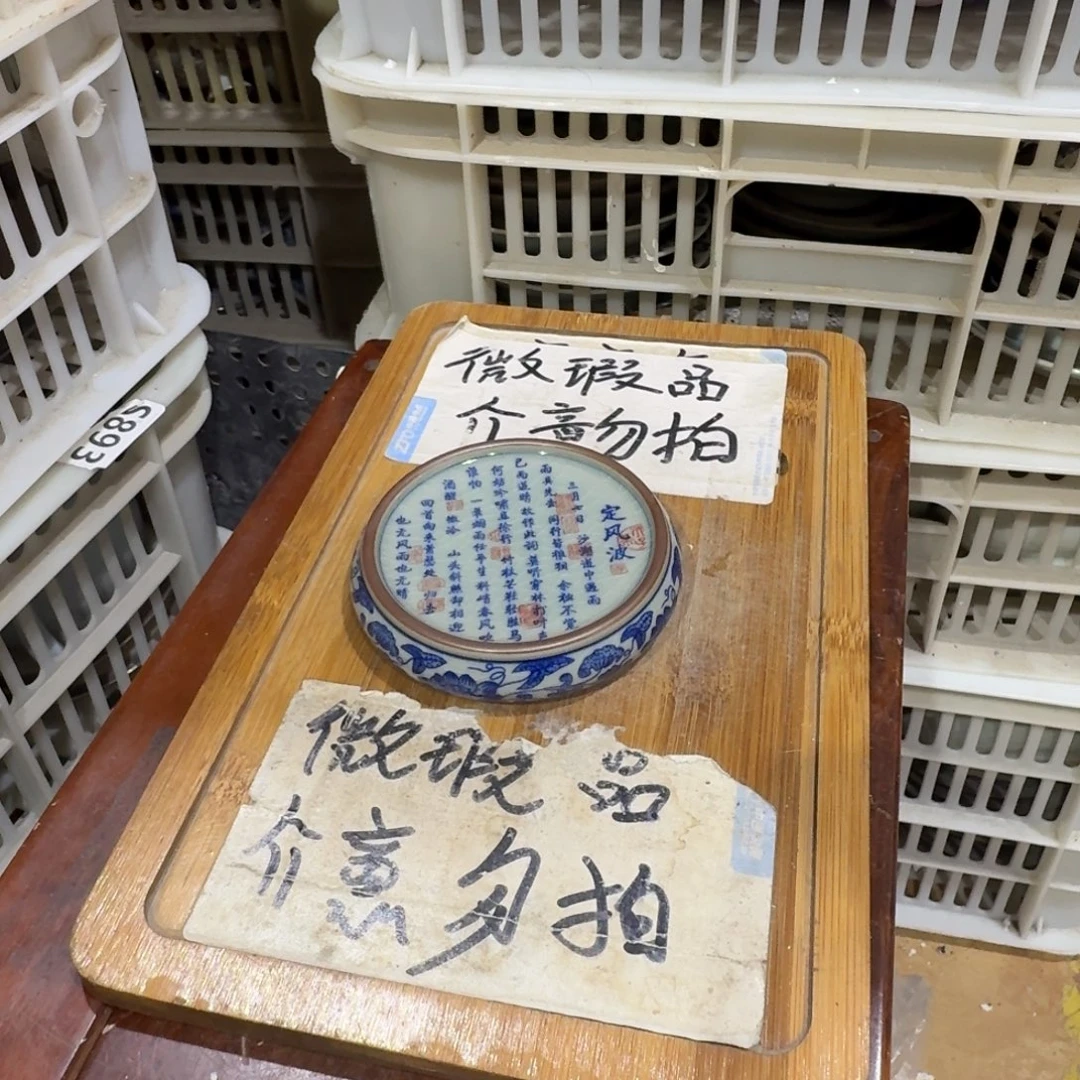 微瑕品
介意勿拍
定风波
三月七日 沙湖道中遇雨
雨具先去 同行皆狼狈 余独不觉
已而遂晴 故作此词 莫听穿林打叶声
何妨吟啸且徐行 竹杖芒鞋轻胜马
谁怕 一蓑烟雨任平生 料峭春风吹
酒醒 微冷 山头斜照却相迎
回首向来萧瑟处 归去
也无风雨也无晴
微瑕品
介意勿拍
S893